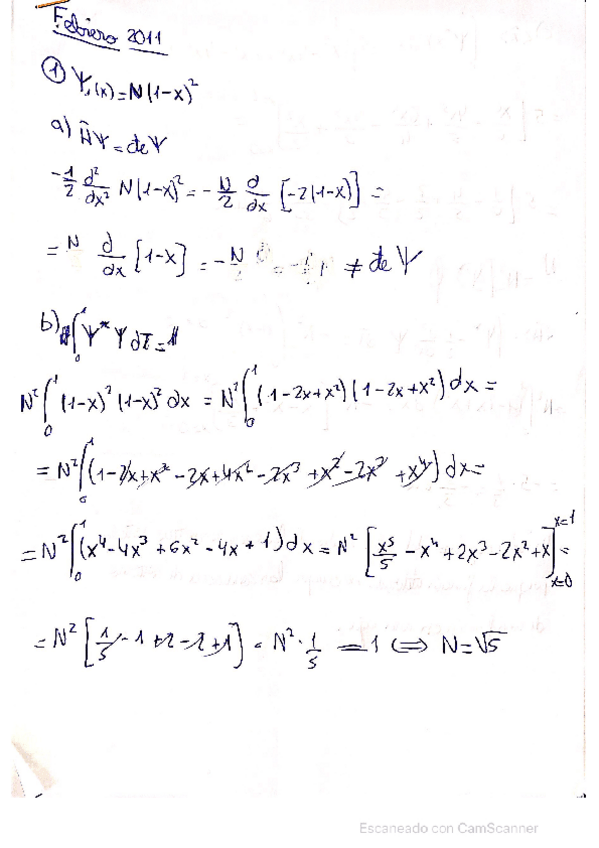 Febrero 2011
① Ψ₁(x)=N(1-x)²
a) ĤΨ=cteΨ
-1/2 d²/dx² N(1-x)² = -N/2 d/dx [-2(1-x)] =
= N d/dx [1-x] = -N ≠ cteΨ
b) ∫₀¹ Ψ* Ψ dτ=1
N² ∫₀¹ (1-x)² (1-x)² dx = N² ∫₀¹ (1-2x+x²)(1-2x+x²) dx =
= N² ∫₀¹ (1-2x+x²-2x+4x²-2x³+x²-2x³+x⁴) dx =
= N² ∫₀¹ (x⁴-4x³+6x²-4x+1) dx = N² [x⁵/5 - x⁴+2x³-2x²+x]ˣ⁼¹ₓ₌₀ =
= N² [1/5 -1+2-2+1] = N² · 1/5 = 1 ⟺ N=√5
Escaneado con CamScanner